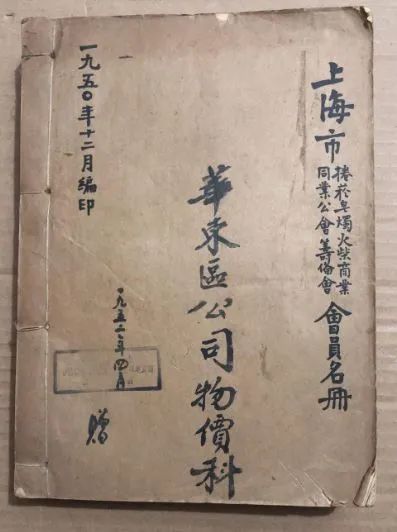 上海市
捲菸皂燭火柴商業
同業公會籌俻會
會員名冊
華東區公司物價科
一九五二年四月
贈
一九五〇年十二月編印